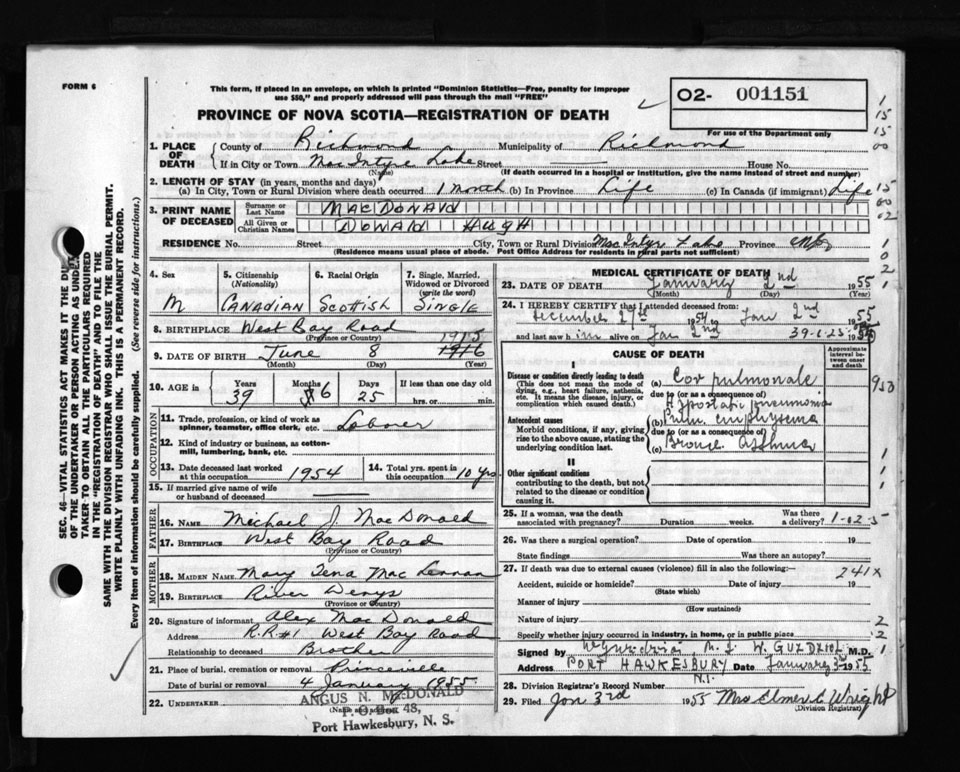 FORM 6
This form, if placed in an envelope, on which is printed "Dominion Statistics—Free, penalty for improper
use $50," and properly addressed will pass through the mail "FREE"
O2- 001151
For use of the Department only
PROVINCE OF NOVA SCOTIA—REGISTRATION OF DEATH
1. PLACE OF DEATH
County of Richmond Municipality of Richmond
If in City or Town MacIntyre Lake Street House No.
(Name) (If death occurred in a hospital or institution, give the name instead of street and number)
2. LENGTH OF STAY (in years, months and days)
(a) In City, Town or Rural Division where death occurred 1 month (b) In Province Life (c) In Canada (if immigrant) Life
3. PRINT NAME OF DECEASED
Surname or Last Name MACDONALD
All Given or Christian Names DONALD HUGH
RESIDENCE No. Street City, Town or Rural Division MacIntyr Lake Province
(Residence means usual place of abode. Post Office Address for residents in rural parts not sufficient)
4. Sex
M
5. Citizenship
(Nationality)
CANADIAN
6. Racial Origin
SCOTTISH
7. Single, Married, Widowed or Divorced
(write the word)
SINGLE
8. BIRTHPLACE West Bay Road
(Province or Country)
1915
9. DATE OF BIRTH June 8 1916
(Month) (Day) (Year)
10. AGE in
Years Months Days If less than one day old
39 6 25 hrs. or min.
OCCUPATION
11. Trade, profession, or kind of work as
spinner, teamster, office clerk, etc. Laborer
12. Kind of industry or business, as cotton-
mill, lumbering, bank, etc.
13. Date deceased last worked
at this occupation 1954
14. Total yrs. spent in
this occupation 10 yrs
15. If married give name of wife
or husband of deceased
FATHER
16. NAME Michael J MacDonald
17. BIRTHPLACE West Bay Road
(Province or Country)
MOTHER
18. MAIDEN NAME Mary Tena MacLennan
19. BIRTHPLACE River Denys
(Province or Country)
20. Signature of informant Alex MacDonald
Address R.R#1 West Bay Road
Relationship to deceased Brother
21. Place of burial, cremation or removal Princeville
Date of burial or removal 4 January 1955
22. UNDERTAKER
(Name and address)
ANGUS N. McDONALD
P. O. Box 48,
Port Hawkesbury, N. S.
MEDICAL CERTIFICATE OF DEATH
23. DATE OF DEATH January 2nd 1955
(Month) (Day) (Year)
24. I HEREBY CERTIFY that I attended deceased from:
December 27th 1954 to Jan 2nd 1955
and last saw him alive on Jan 2nd 1955
39-6-25
CAUSE OF DEATH
Approximate interval between onset and death
I
Disease or condition directly leading to death
(This does not mean the mode of
dying, e.g., heart failure, asthenia,
etc. It means the disease, injury, or
complication which caused death.)
(a) Cor pulmonale
due to (or as a consequence of)
Hypostatic pneumonia
Antecedent causes
Morbid conditions, if any, giving
rise to the above cause, stating the
underlying condition last.
(b) Pulm. emphysema
due to (or as a consequence of)
(c) Bronch asthma
II
Other significant conditions
contributing to the death, but not
related to the disease or condition
causing it.
25. If a woman, was the death
associated with pregnancy? Duration weeks. Was there a delivery?
1-02-5
26. Was there a surgical operation? Date of operation 19
State findings Was there an autopsy?
27. If death was due to external causes (violence) fill in also the following:
241X
Accident, suicide or homicide? Date of injury 19
(State which)
Manner of injury
(How sustained)
Nature of injury
Specify whether injury occurred in industry, in home, or in public place
Signed by W. GUZDZIOL M.D.
Address PORT HAWKESBURY Date January 3rd 1955
N.S.
28. Division Registrar's Record Number
29. Filed Jan 3rd 1955 Mrs Elmer C Wright
(Division Registrar)
SEC. 46—VITAL STATISTICS ACT MAKES IT THE DUTY
OF THE UNDERTAKER OR PERSON ACTING AS UNDER-
TAKER TO OBTAIN ALL THE PARTICULARS REQUIRED
IN THE "REGISTRATION OF DEATH" AND TO FILE THE
SAME WITH THE DIVISION REGISTRAR WHO SHALL ISSUE THE BURIAL PERMIT.
WRITE PLAINLY WITH UNFADING INK. THIS IS A PERMANENT RECORD.
Every item of information should be carefully supplied. (See reverse side for instructions.)